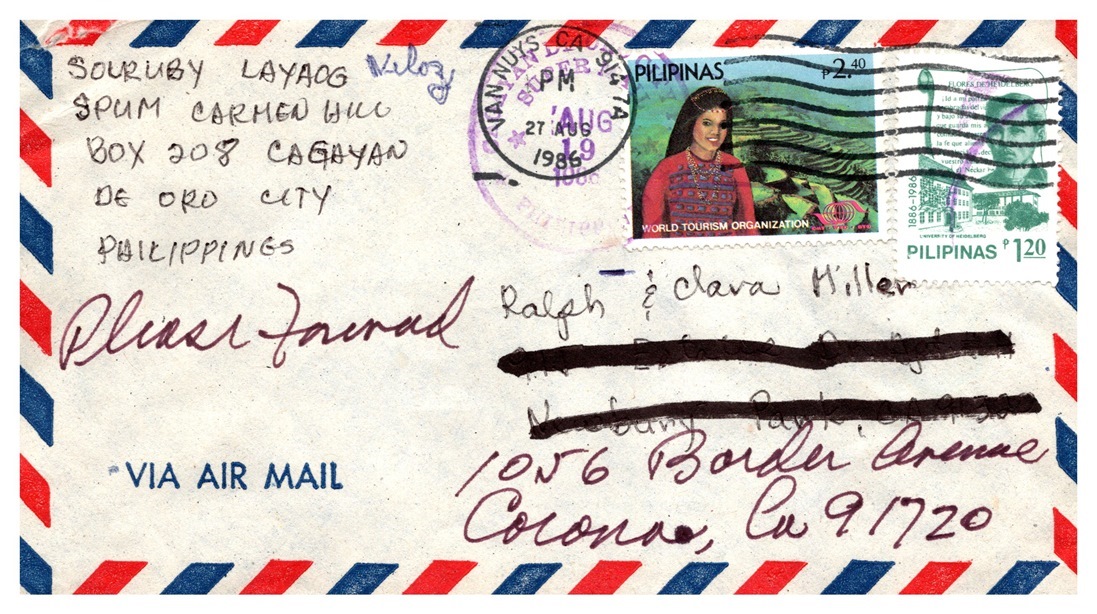 SOURUBY LAYAOG Veloz
SPUM CARMEN HILL
BOX 208 CAGAYAN
DE ORO CITY
PHILIPPINES
VAN NUYS, CA 914 7A
PM
27 AUG
1986
AUG
19
1986
PILIPINAS ₱2.40
WORLD TOURISM ORGANIZATION
FLORES DE HEIDELBERG
1886-1986
UNIVERSITY OF HEIDELBERG
PILIPINAS ₱1.20
Please Forward
Ralph & Clara Miller
Newbury Park, CA
1056 Border Avenue
Corona, Ca 91720
VIA AIR MAIL